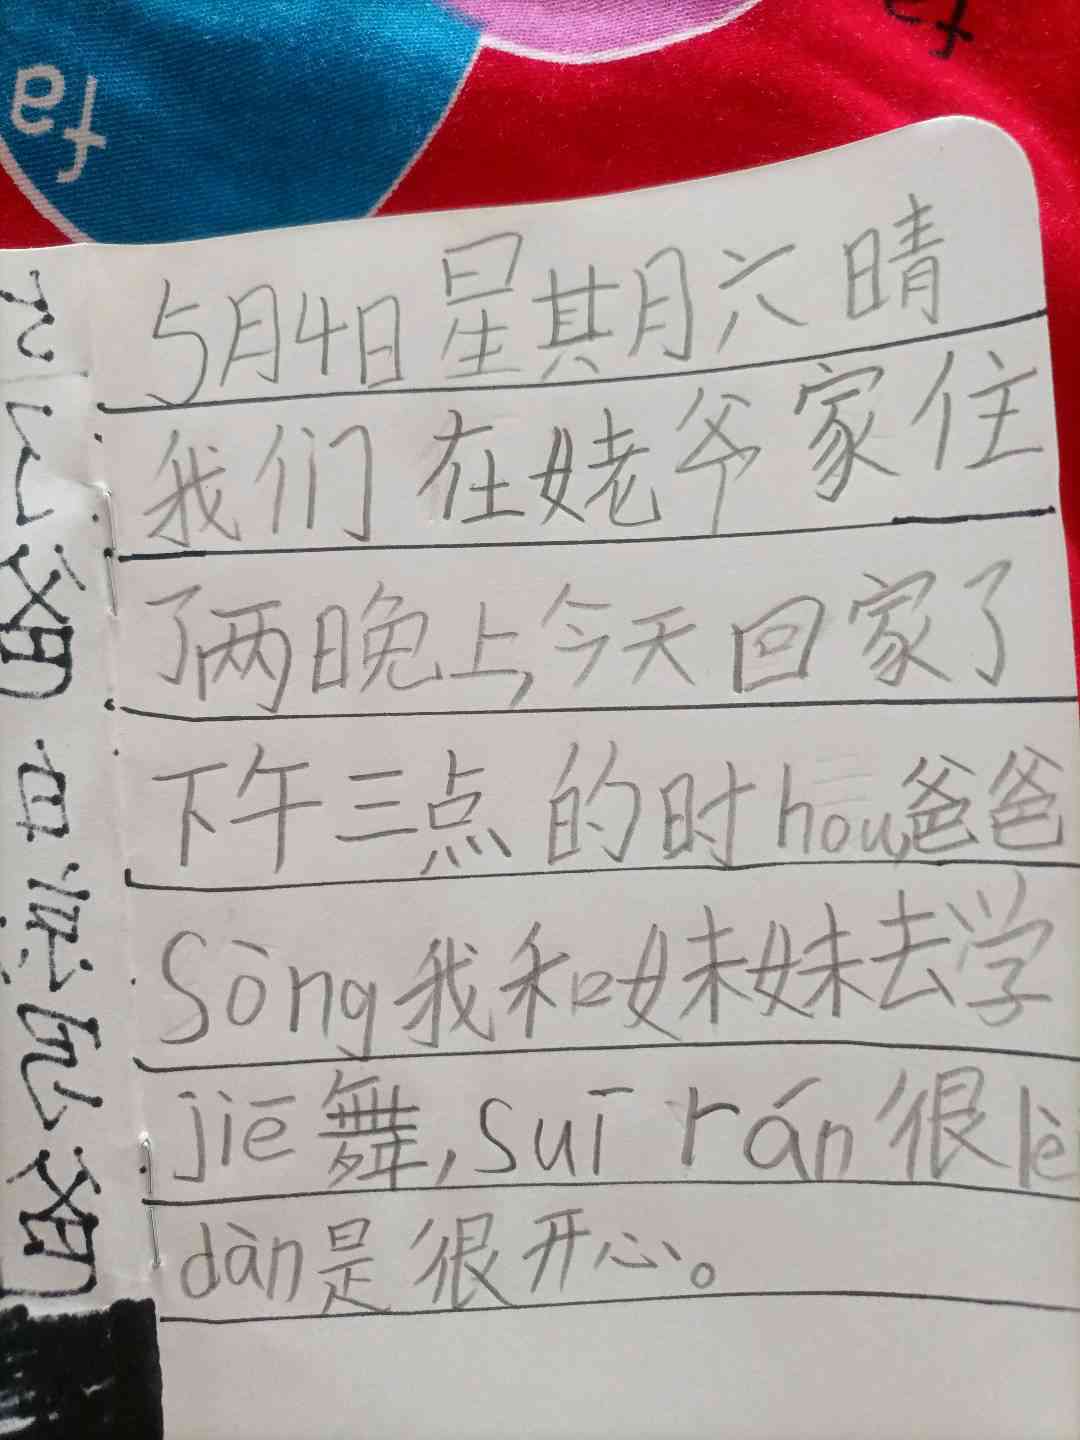 fa
5月4日星期六 晴
我们在姥爷家住
了两晚上,今天回家了
下午三点的时hou,爸爸
Sòng我和妹妹去学
jiē舞,suī rán很lè
dàn是很开心。